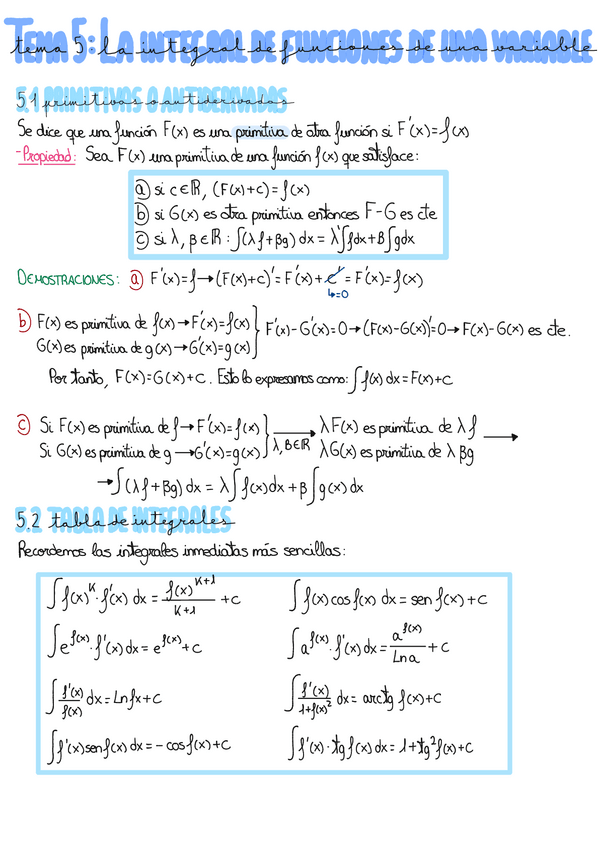 Tema 5: La integral de funciones de una variable
5.1 primitivas o antiderivadas
Se dice que una función F(x) es una primitiva de otra función si F'(x)=f(x)
-Propiedad: Sea F(x) una primitiva de una función f(x) que satisface:
a) si c∈ℝ, (F(x)+c)=f(x)
b) si G(x) es otra primitiva entonces F-G es cte
c) si λ, β∈ℝ: ∫(λf+βg)dx = λ∫fdx+β∫gdx
DEMOSTRACIONES: a) F'(x)=f→(F(x)+c)'=F'(x)+c'=F'(x)=f(x)
↳=0
b) F(x) es primitiva de f(x)→F'(x)=f(x) } F'(x)-G'(x)=0→(F(x)-G(x))'=0→F(x)-G(x) es cte.
G(x) es primitiva de g(x)→G'(x)=g(x)
Por tanto, F(x)=G(x)+c. Esto lo expresamos como: ∫f(x)dx=F(x)+c
c) Si F(x) es primitiva de f→F'(x)=f(x) } → λF(x) es primitiva de λf →
Si G(x) es primitiva de g→G'(x)=g(x) λ,β∈ℝ λG(x) es primitiva de λβg
→∫(λf+βg)dx = λ∫f(x)dx+β∫g(x)dx
5.2 tabla de integrales
Recordemos las integrales inmediatas más sencillas:
∫f(x)^K·f'(x)dx = f(x)^(K+1)/(K+1) +c    ∫f(x)cosf(x)dx = senf(x)+c
∫e^f(x)·f'(x)dx = e^f(x)+c    ∫a^f(x)·f'(x)dx = a^f(x)/Lna +c
∫f'(x)/f(x) dx = Lnfx+c    ∫f'(x)/(1+f(x)²) dx = arctgf(x)+c
∫f'(x)senf(x)dx = -cosf(x)+c    ∫f'(x)·tgf(x)dx = 1+tg²f(x)+c